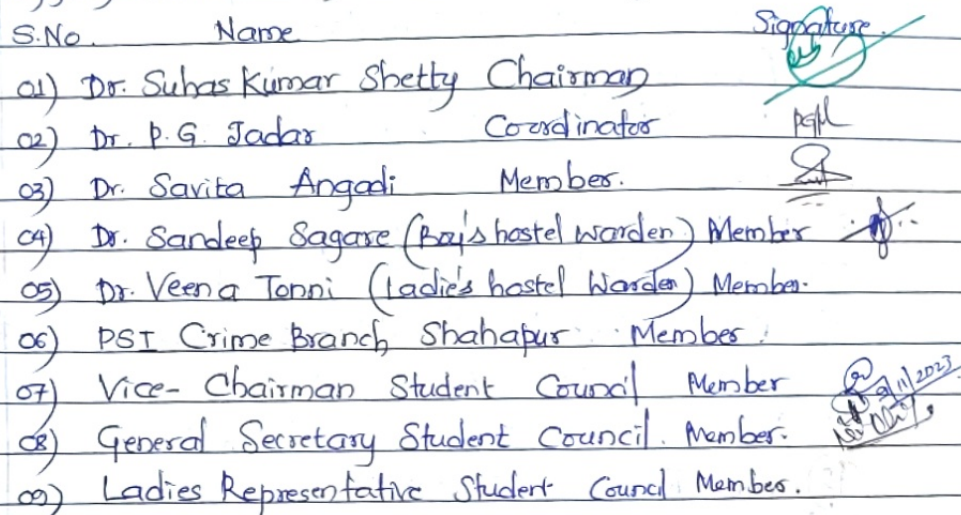 S.No. Name Signature.
01) Dr. Suhas Kumar Shetty Chairman
02) Dr. P.G. Jadar Coordinator
03) Dr. Savita Angadi Member.
04) Dr. Sandeep Sagare (Boy's hostel warden) Member
05) Dr. Veena Tonni (Ladie's hostel Warden) Member.
06) PSI Crime Branch Shahapur Member
07) Vice-Chairman Student Council Member 9/11/2023
08) General Secretary Student Council. Member.
09) Ladies Representative Student Council Member.